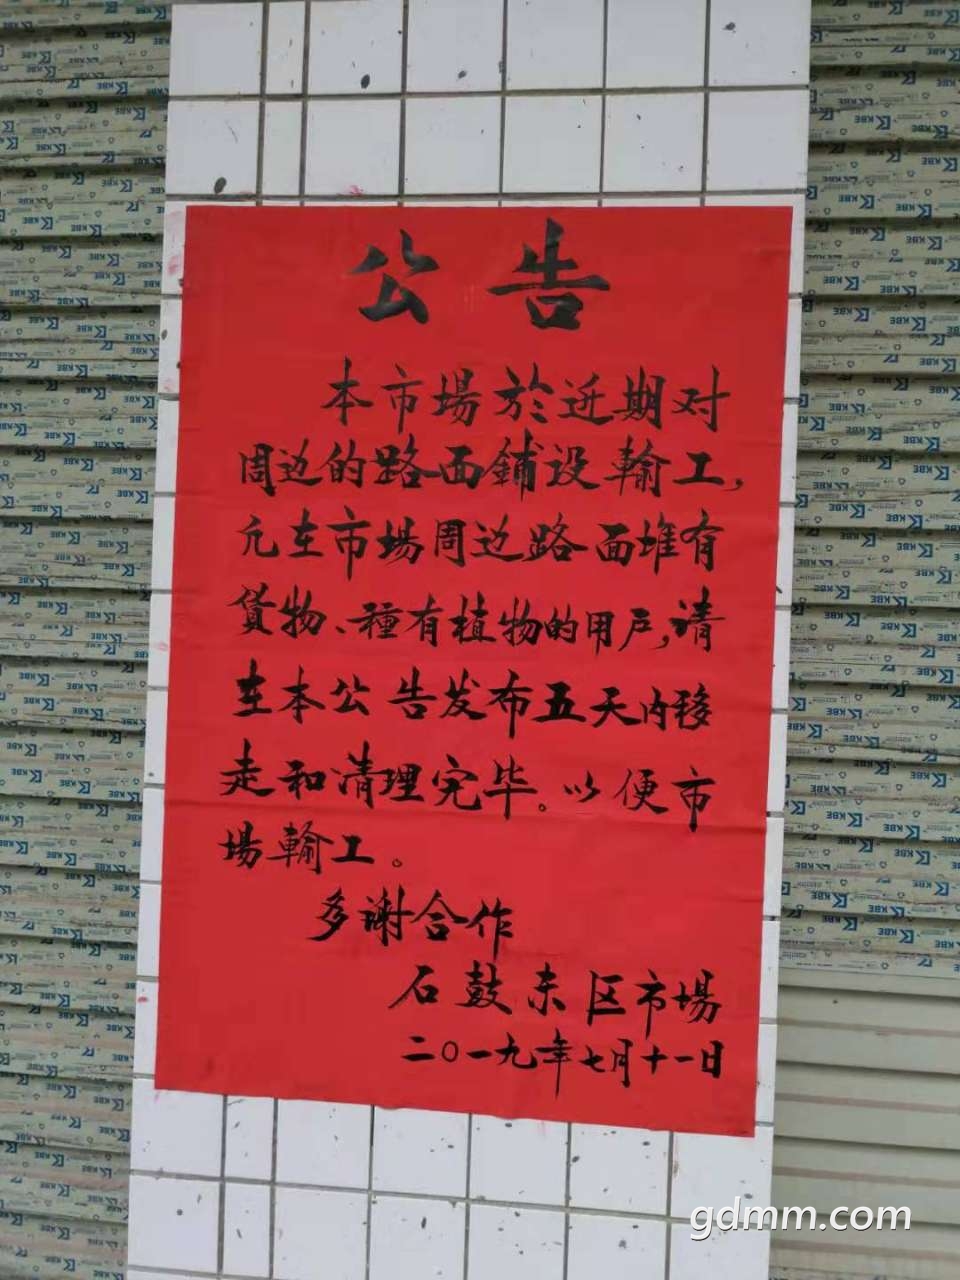 公告
本市場於近期对
周边的路面鋪设輸工,
凢在市場周边路面堆有
貨物、種有植物的用户,请
在本公告发布五天内移
走和清理完毕。以便市
場輸工。
多谢合作
石鼓东区市場
二〇一九年七月十一日
gdmm.com